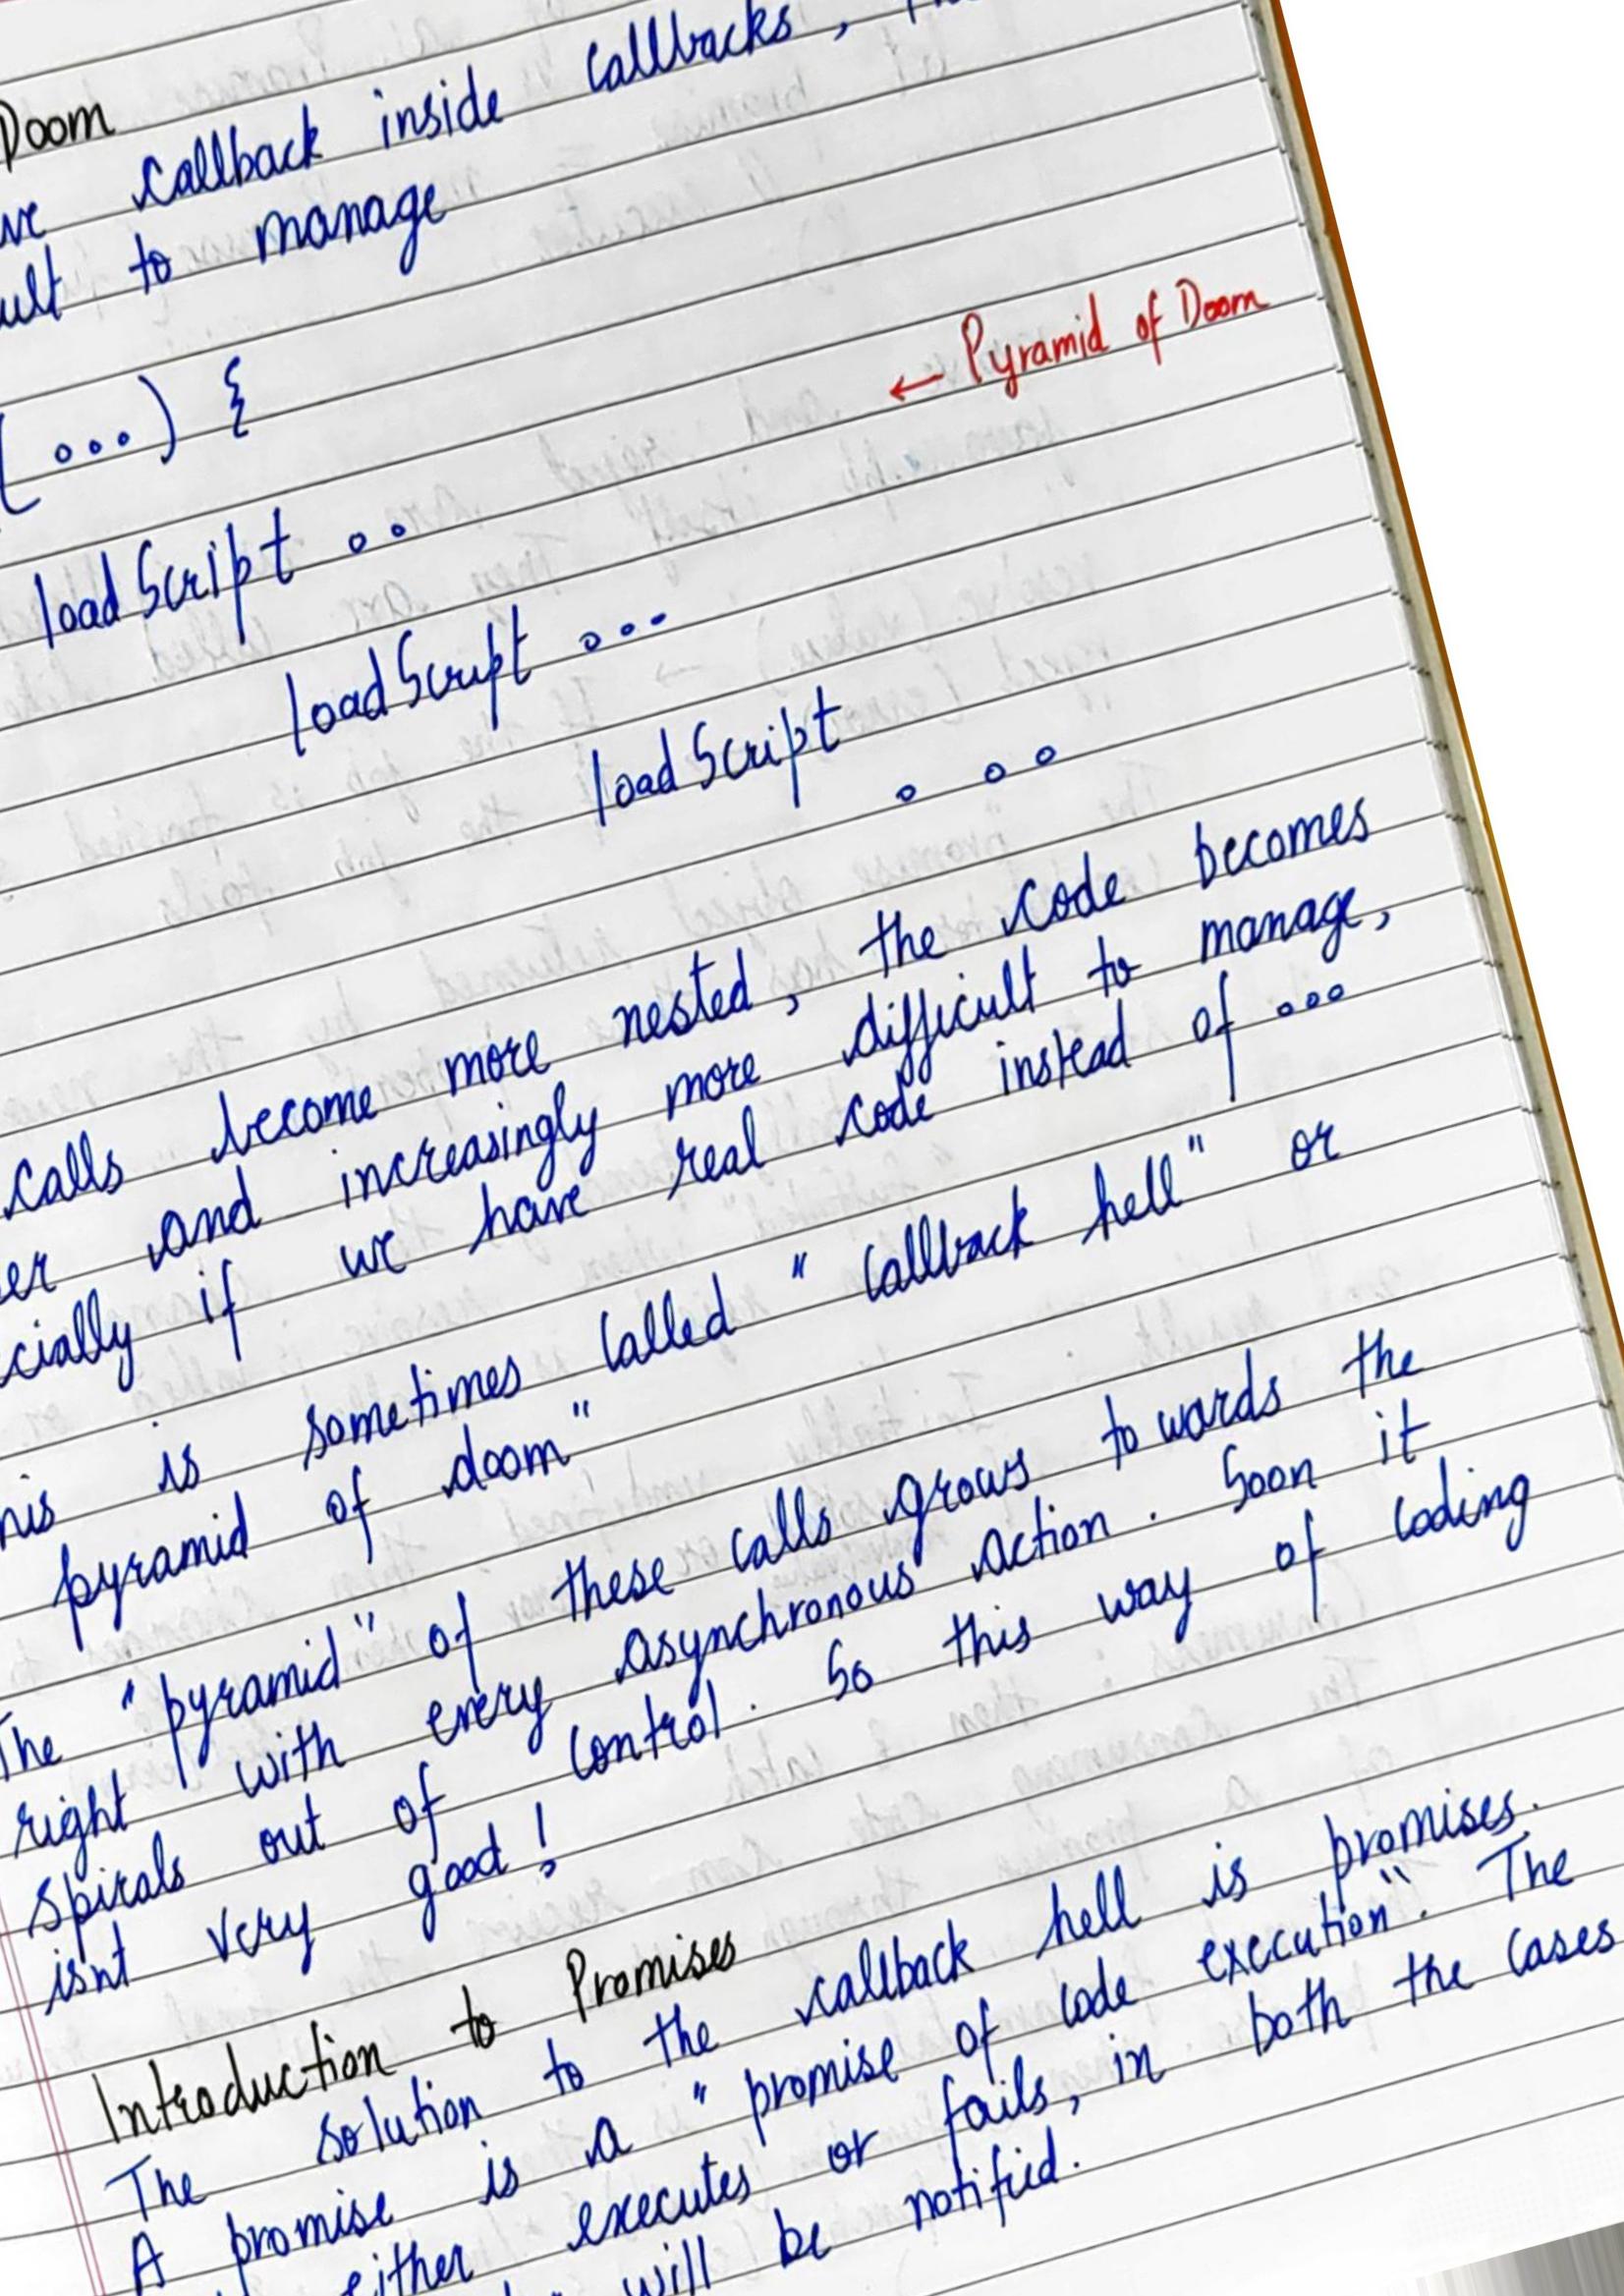 Doom
callback inside callbacks,
to manage
(...) {
← Pyramid of Doom
loadScript ..
loadScript ...
loadScript ...
calls become more nested, the code becomes
and increasingly more difficult to manage,
if we have real code instead of ...
is sometimes called "callback hell" or
pyramid of doom"
The "pyramid" of these calls grows towards the
right with every asynchronous action. Soon it
spirals out of control. So this way of coding
isnt very good!
Introduction to Promises
The solution to the callback hell is promises.
A promise is a "promise of code execution". The
either executes or fails, in both the cases
will be notified.